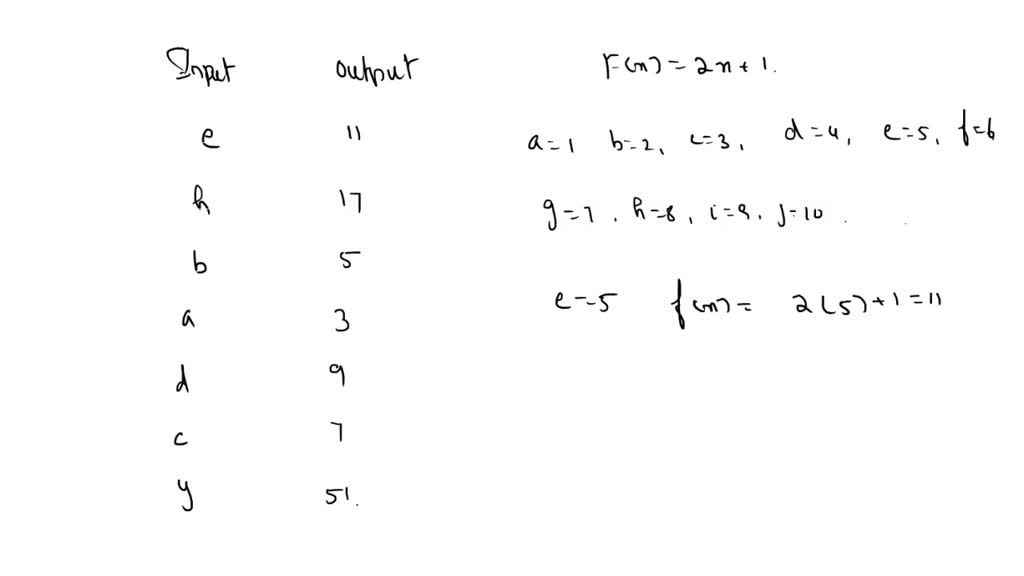 Input output F(n) = 2n + 1.
e 11 a=1 b=2, c=3, d=4, e=5, f=6
h 17 g=7, h=8, i=9, j=10
b 5
e=5 f(n) = 2(5)+1=11
a 3
d 9
c 7
y 51.